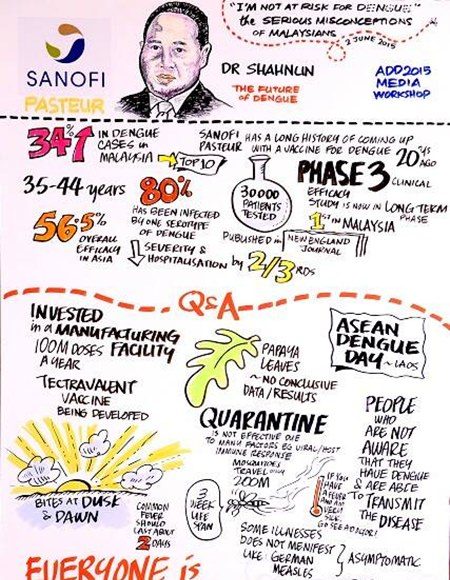 "I'M NOT AT RISK FOR DENGUE"
the SERIOUS MISCONCEPTIONS
OF MALAYSIANS
2 JUNE 2015
SANOFI
PASTEUR
DR SHAHNUN
THE FUTURE
OF DENGUE
ADD2015
MEDIA
WORKSHOP
34%↑
IN DENGUE
CASES in
MALAYSIA
TOP 10
SANOFI
PASTEUR
HAS A LONG HISTORY OF COMING UP
WITH A VACCINE FOR DENGUE
20 YRS
AGO
35-44 years
80%
HAS BEEN INFECTED
BY ONE SEROTYPE
OF DENGUE
30000
PATIENTS
TESTED
PHASE 3 CLINICAL
EFFICACY
STUDY IS NOW IN LONG TERM
PHASE
1ST IN MALAYSIA
56.5%
OVERALL
EFFICACY
IN ASIA
↓ SEVERITY &
HOSPITALISATION by 2/3 RDS
PUBLISHED in
NEW ENGLAND
JOURNAL
Q&A
INVESTED
in a MANUFACTURING
100M DOSES FACILITY
A YEAR
TECTRAVALENT
VACCINE
BEING DEVELOPED
PAPAYA
LEAVES
~ NO CONCLUSIVE
DATA/RESULTS
ASEAN
DENGUE
DAY ~LAOS
QUARANTINE
IS NOT EFFECTIVE DUE
TO MANY FACTORS EG VIRAL/HOST
IMMUNE RESPONSE
MOSQUITOES
TRAVEL only
200M
PEOPLE
WHO
ARE NOT
AWARE
THAT THEY
HAVE DENGUE
& ARE ABLE
TO TRANSMIT
THE DISEASE
BITES AT DUSK
& DAWN
COMMON
FEVER
SHOULD
LAST ABOUT
2 DAYS
3
WEEK
LIFE
SPAN
IF YOU
HAVE
A FEVER
AND ARE
VERY
SICK,
GO SEE A DOCTOR!
SOME ILLNESSES
DOES NOT MENIFEST
LIKE GERMAN
MEASLES
ASYMPTOMATIC
EVERYONE is